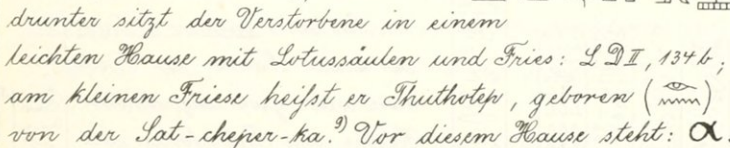 drunter sitzt der Verstorbene in einem
leichten Hause mit Lotussäulen und Fries: LD II, 134 b;
am kleinen Friese heißt er Thuthotep, geboren (𓁹𓈖)
von der Sat-cheper-ka.⁹⁾ Vor diesem Hause steht: α.